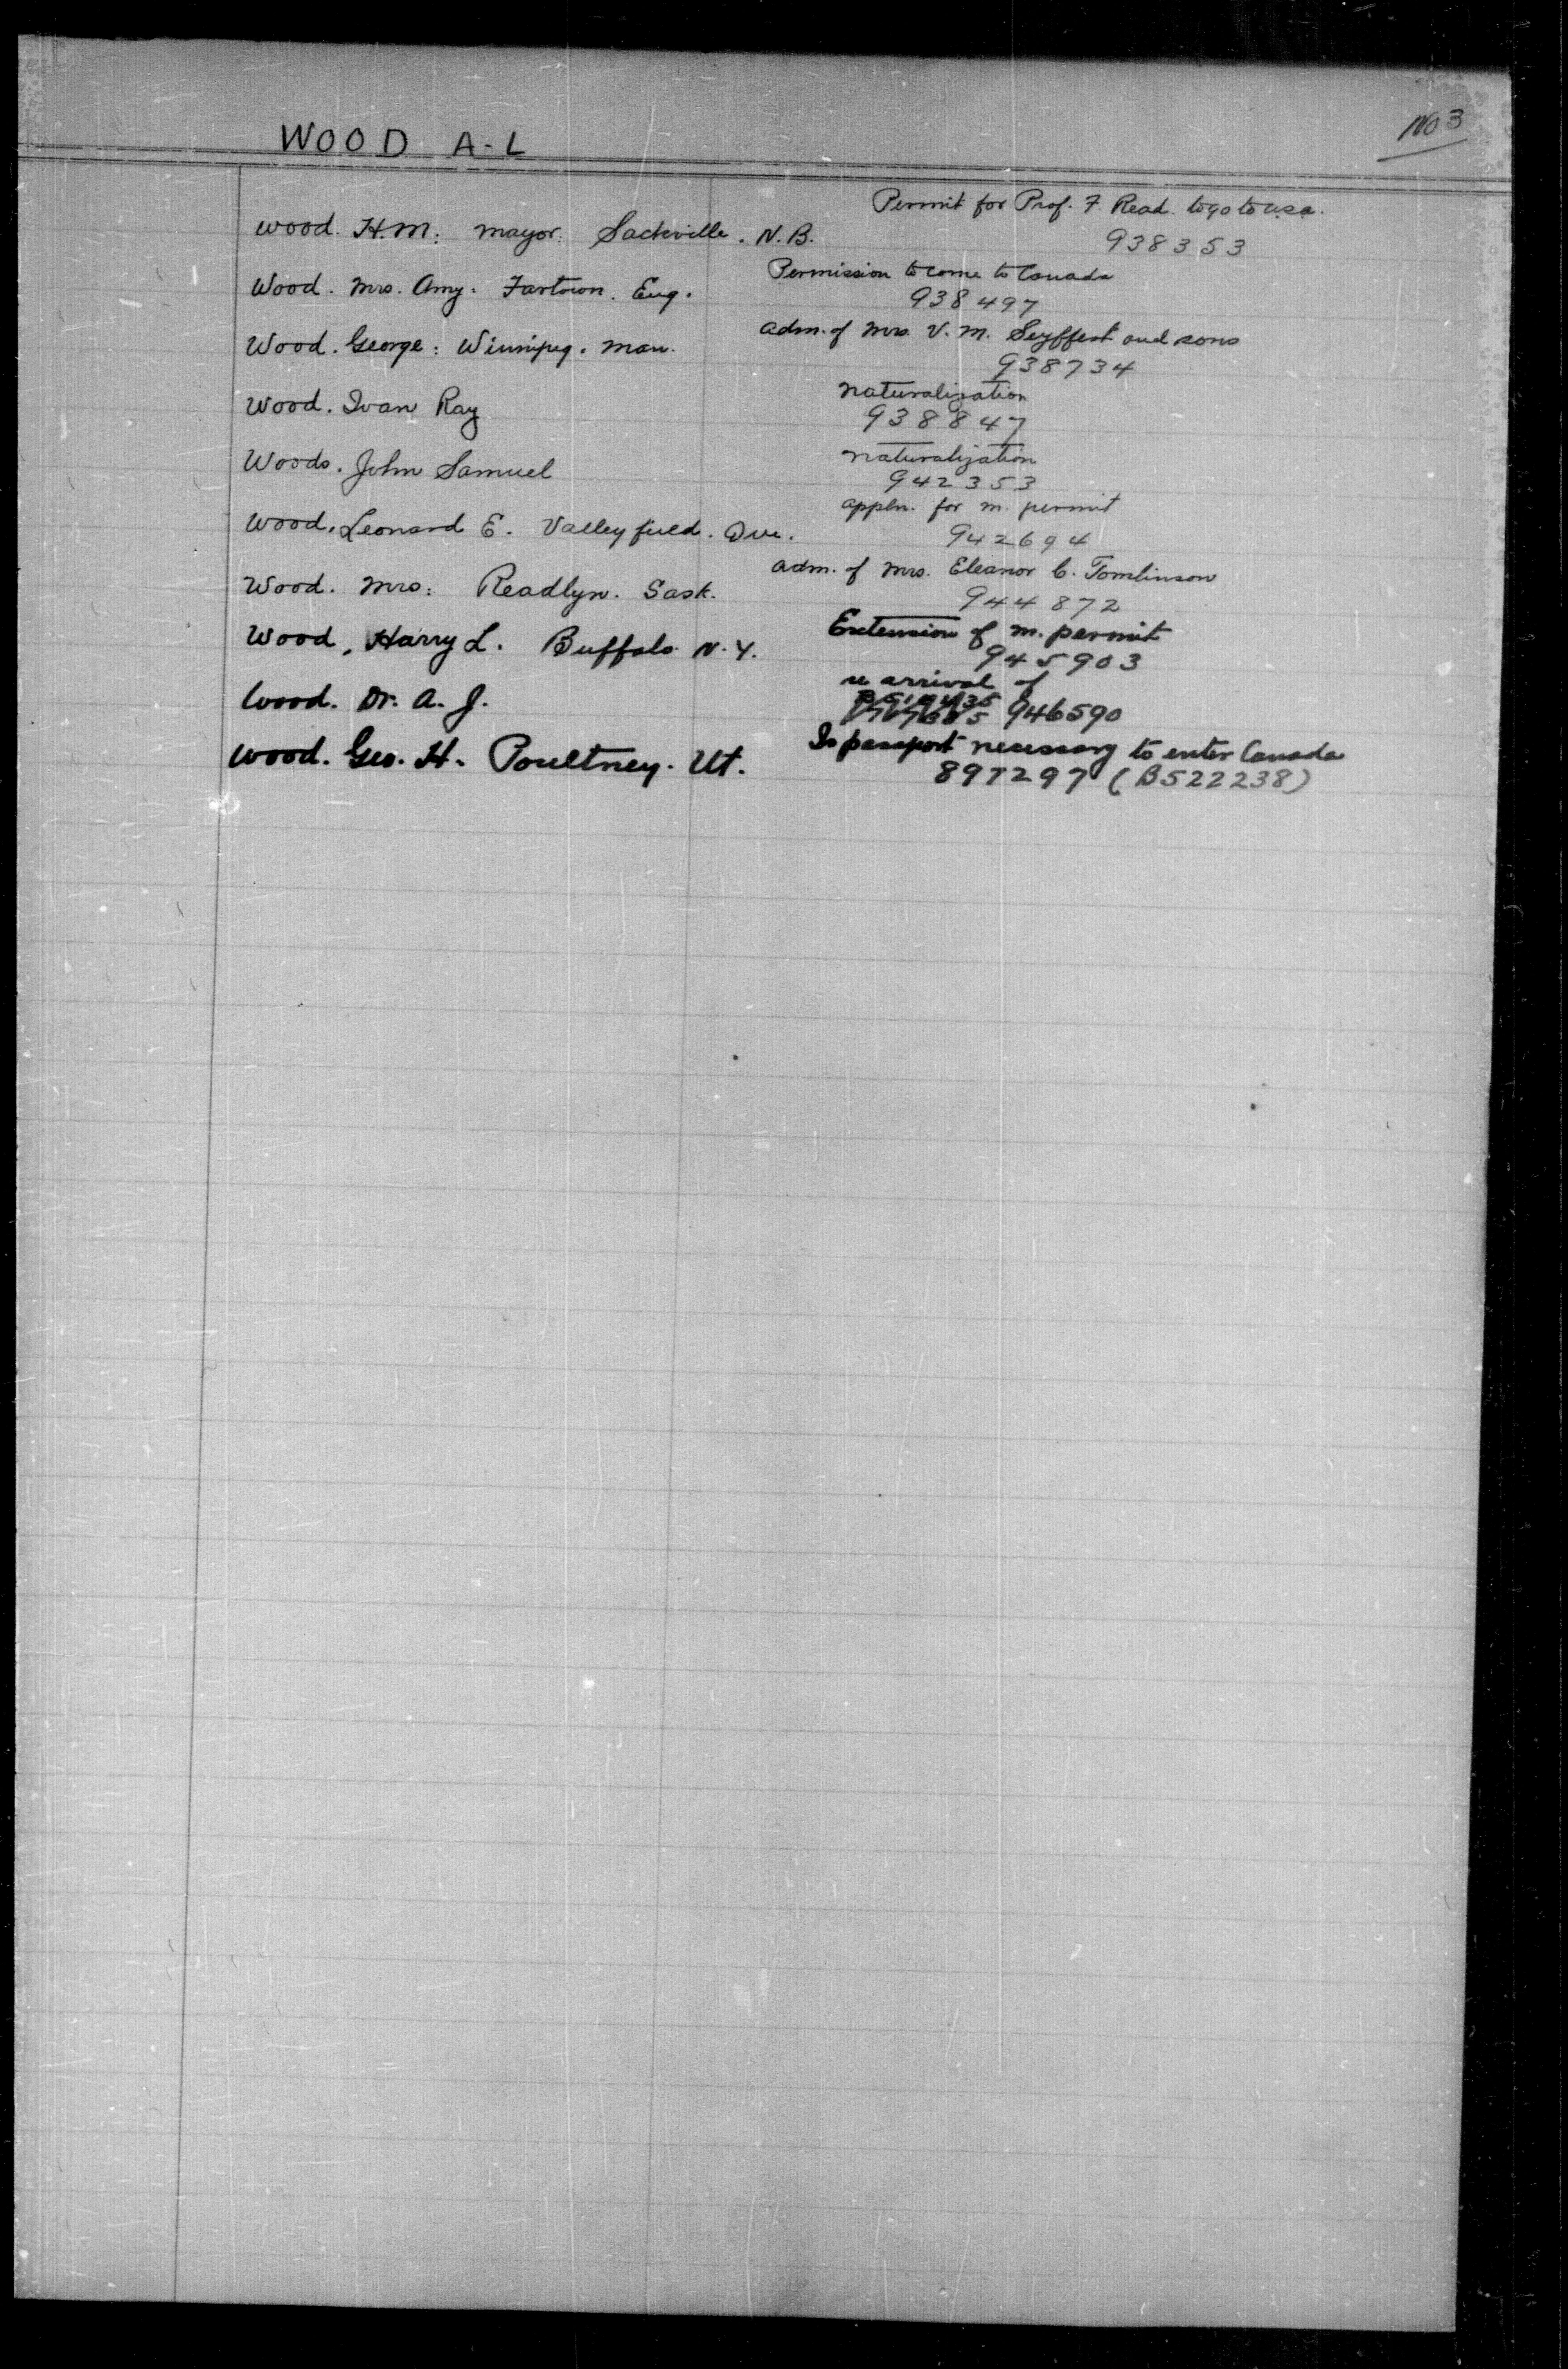 WOOD A-L
No 3
Permit for Prof. F. Read. to go to U.S.A.
Wood. H.M: Mayor: Sackville. N.B.
938353
Permission to come to Canada
Wood. Mrs. Amy. Fartown. Eng.
938497
Adm. of Mrs. V. M. Seyffert and sons
Wood. George: Winnipeg. Man.
938734
Naturalization
Wood. Ivan Ray
938847
Naturalization
Woods. John Samuel
942353
Appln. for M. permit
Wood, Leonard E. Valleyfield. Que.
942694
Adm. of Mrs. Eleanor C. Tomlinson
Wood. Mrs: Readlyn. Sask.
944872
Extension of M. permit
Wood, Harry L. Buffalo N.Y.
945903
re arrival of
Wood. Dr. A. J.
946590
Is passport necessary to enter Canada
Wood. Geo. H. Poultney. Vt.
897297 (B522238)